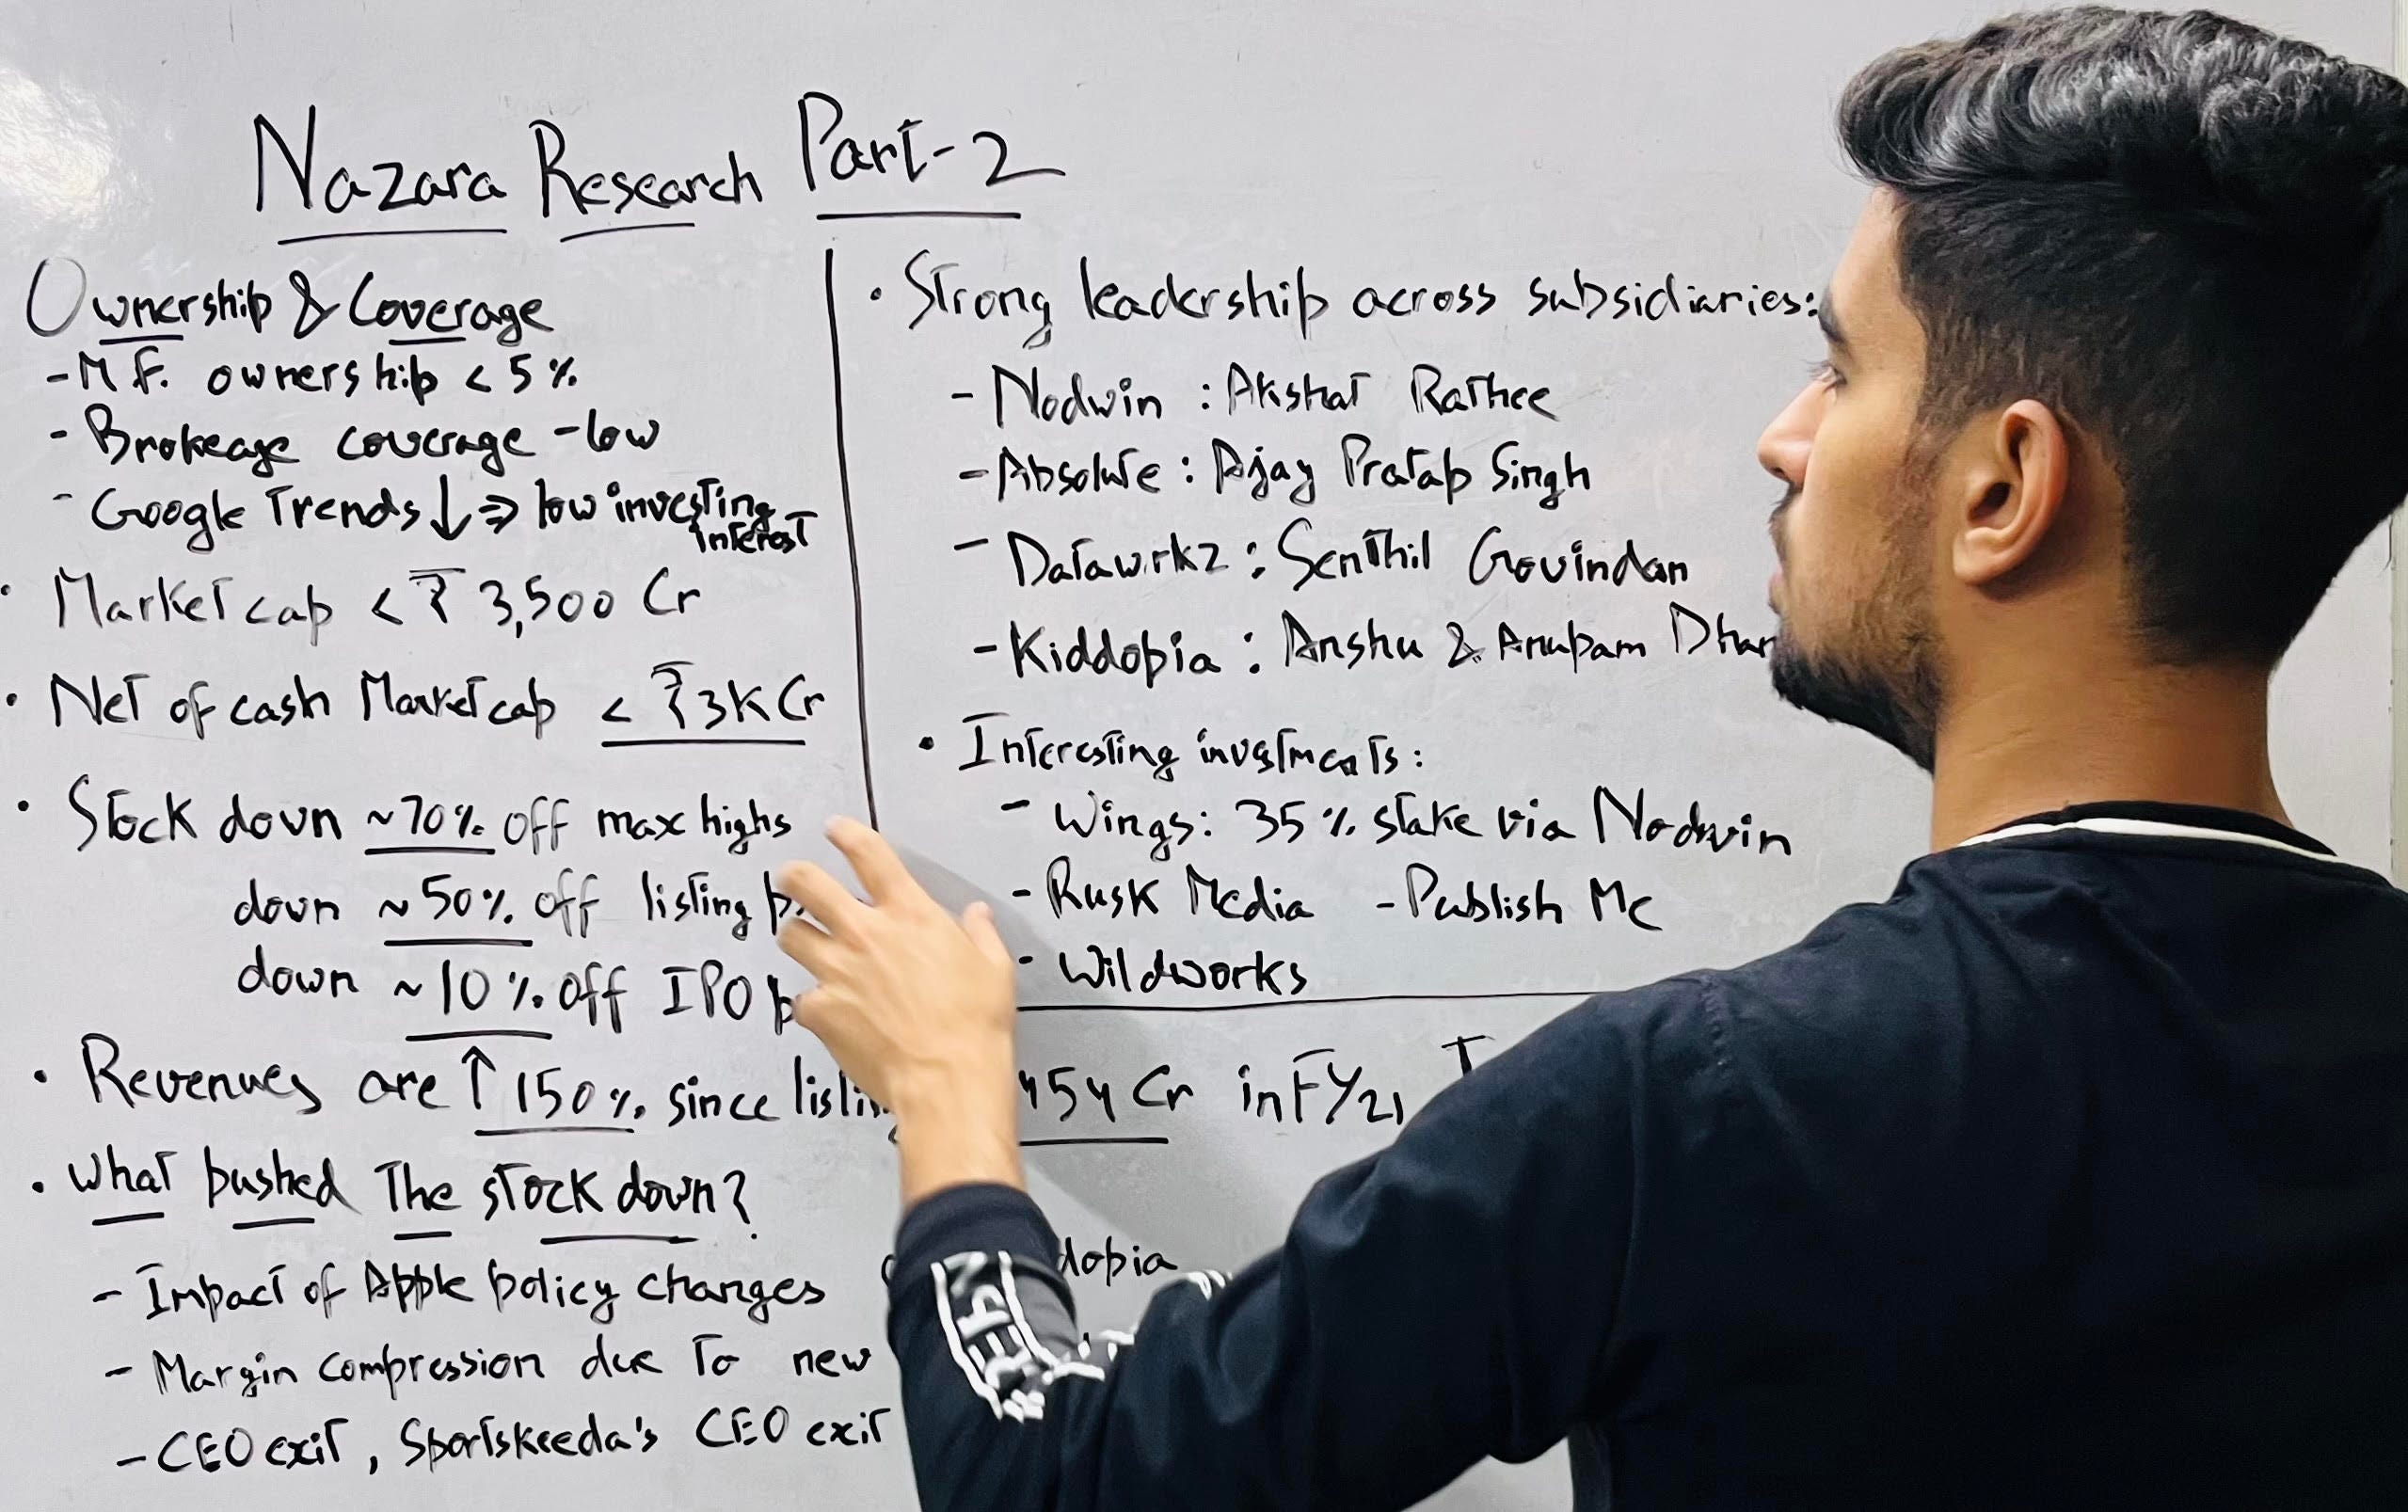 Nazara Research Part-2
Ownership & Coverage
- M.F. ownership < 5%
- Brokeage coverage - low
- Google Trends ↓ => low investing
interest
• Market cap < ₹ 3,500 Cr
• Net of cash Market cap < ₹3K Cr
• Stock down ~70% off max highs
down ~50% off listing
down ~10% off IPO
• Revenues are ↑ 150% since
• What pushed the stock down?
- Impact of Apple policy changes
- Margin compression due to new
- CEO exit, Sportskeeda's CEO exit
• Strong leadership across subsidiaries:
- Nodwin : Akshat Rathee
- Absolute : Ajay Pratap Singh
- Datawrkz : Senthil Govindan
- Kiddopia : Anshu & Anupam
• Interesting investments:
- Wings: 35% stake via Nodwin
- Rusk Media - Publish Me
- Wildworks
454 Cr in FY21